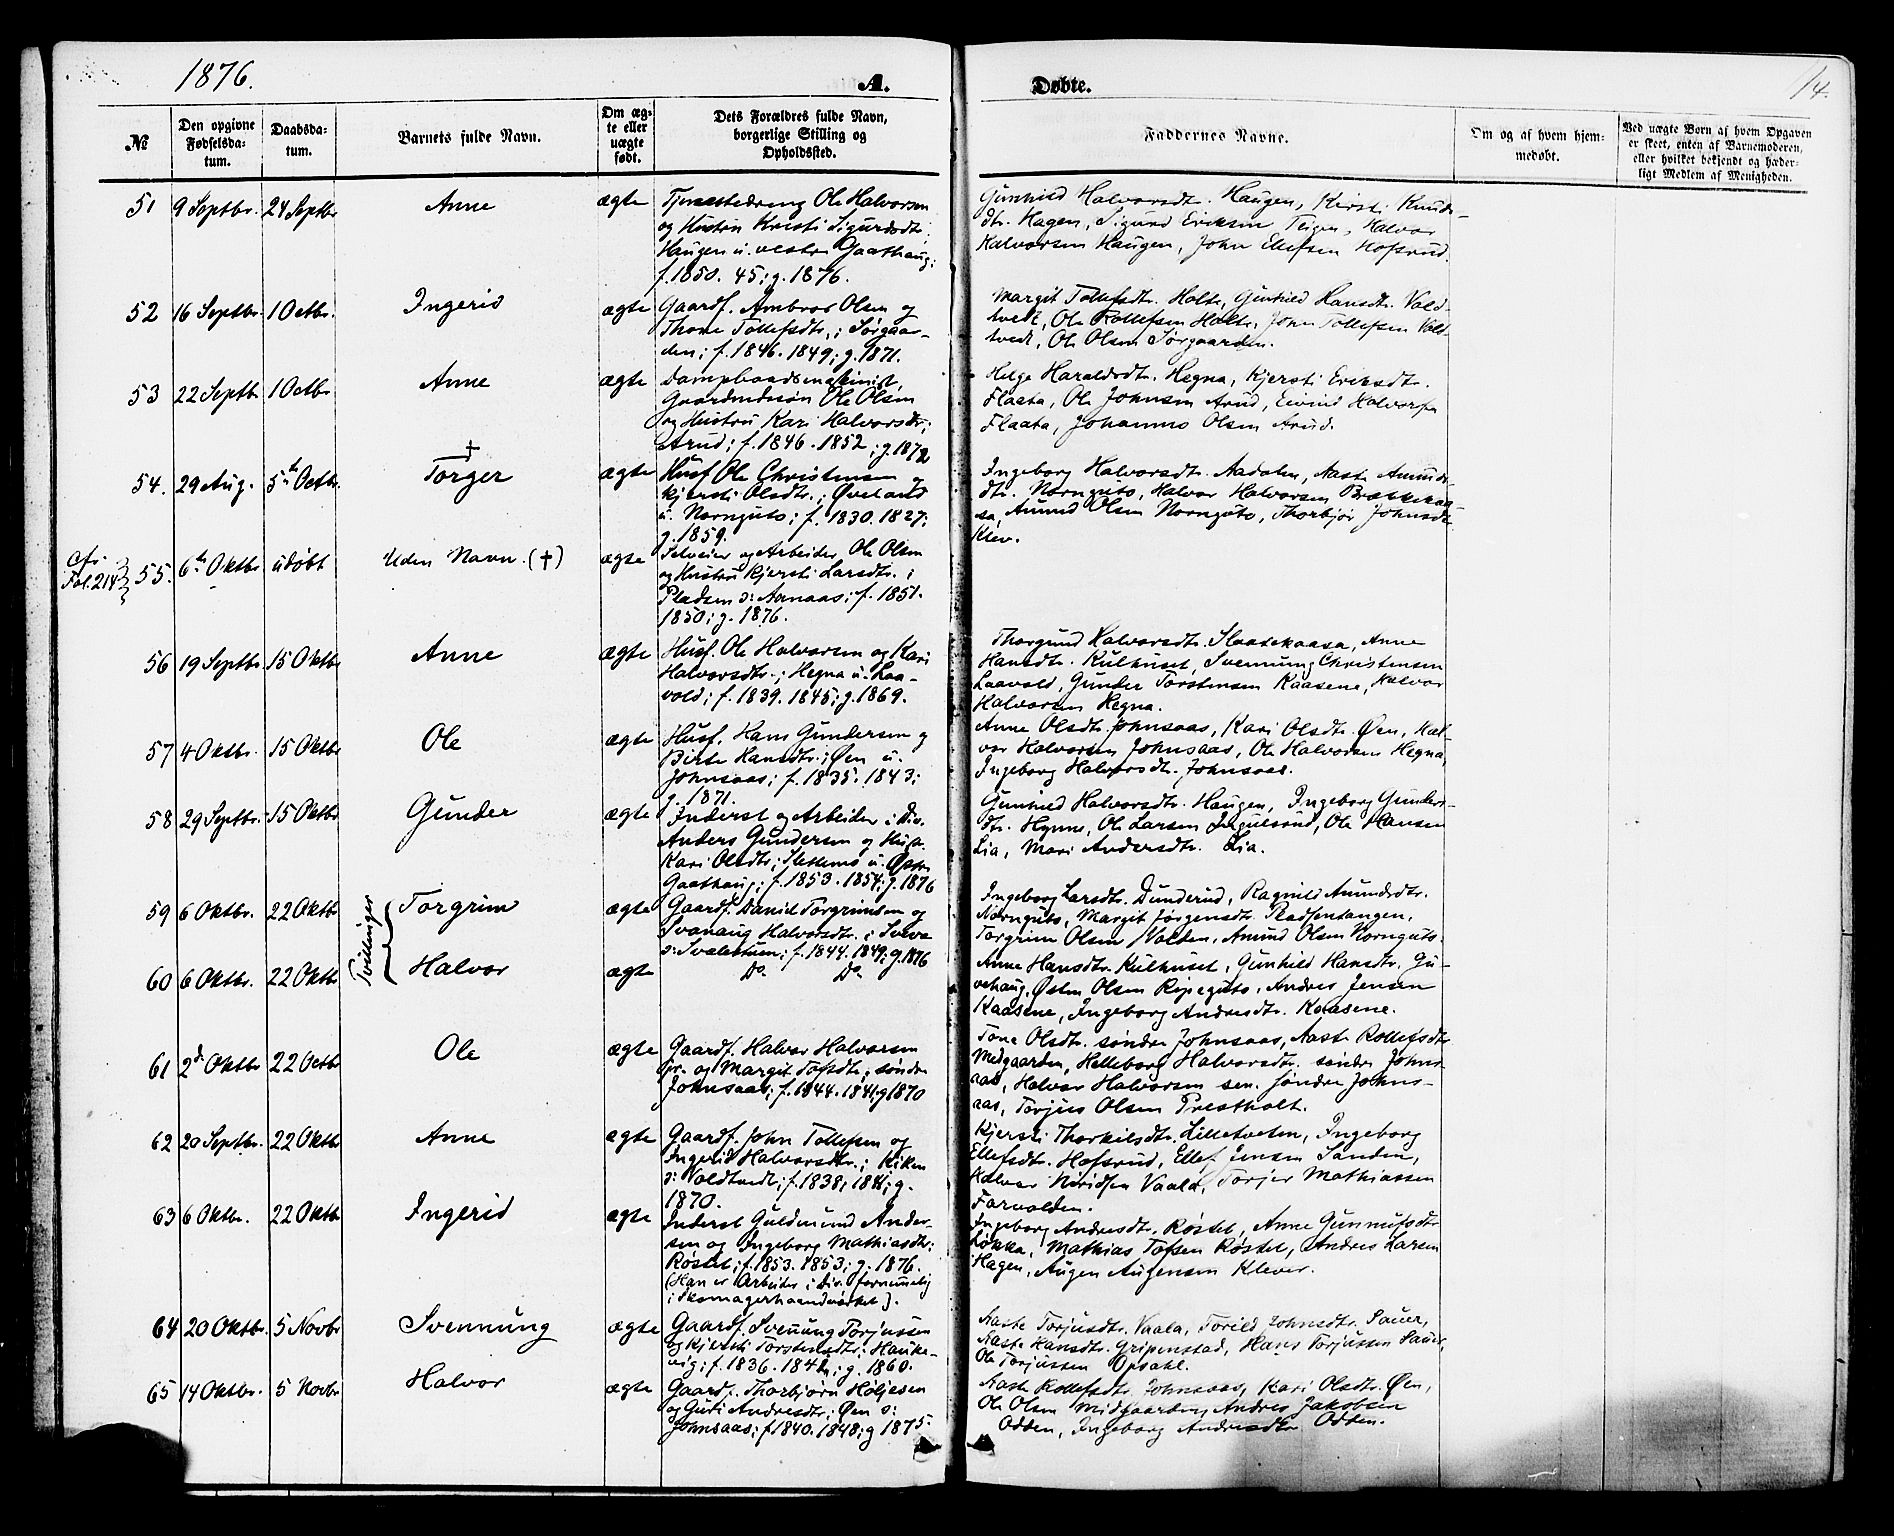 1876.
A.
Døbte.
14.
№
Den opgivne Fødselsdatum.
Daabsdatum.
Barnets fulde Navn.
Om ægte eller uægte født.
Dets Forældres fulde Navn, borgerlige Stilling og Opholdssted.
Faddernes Navne.
Om og af hvem hjemmedøbt.
Ved uægte Børn af hvem Opgaven er skeet, enten af Barnemoderen, eller hvilket bekjendt og hæderligt Medlem af Menigheden.
51 9 Septbr. 24 Septbr Anne ægte
Tjenestedreng Ole Halvorsen
og Hustru Kristi Sigurdsdtr.
Haugen u. vestre Gaathaug;
f. 1850. 45; g. 1876.
Gunhild Halvorsdt. Haugen, Kirsti Knuds-
dtr. Hagen, Sigurd Eriksen Teigen, Halvor
Halvorsen Haugen, John Ellefsen Hofsrud.
52 16 Septbr. 1 Octbr. Ingerid ægte
Gaardf. Ambros Olsen og
Thone Tollefsdtr.; Sørgaar-
den; f. 1846. 1849; g. 1871.
Margit Tollefsdtr. Holte, Gunhild Hansdtr. Vold-
tvedt, Ole Rollefsen Holte, John Tollefsen Vold-
tvedt, Ole Olsen Sørgaarden.
53 22 Septb. 1 Octbr Anne ægte
Dampbaadsmaskinist,
Gaardmandssøn Ole Olsen
og Hustru Kari Halvorsdtr;
Arud; f. 1846. 1852; g. 1872
Helge Haraldsdt. Hegna, Kjersti Eriksdtr.
Flaata, Ole Johnsen Arud, Eivind Halvorsen
Flaata, Johannes Olsen Arud.
†
54. 29 Aug. 5te Octbr. Torger ægte
Husf. Ole Christensen og
Kjersti Olsdtr.; Øveland
u. Nornguto; f. 1830. 1827;
g. 1859.
Ingeborg Halvorsdtr. Aadalen, Aaste Amunds-
dtr. Nornguto, Halvor Halvorsen Brækkekaa-
sa, Amund Olsen Nornguto, Thorbjør Johnsdtr
Klev.
cfr
Fol. 214
55. 6te Oktbr udøbt Uden Navn. (†) ægte
Selveier og Arbeider Ole Olsen
og Hustru Kjersti Larsdtr.;
Pladsen s: Aanaas; f. 1851.
1850; g. 1876.
56 19 Septbr 15 Oktbr Anne ægte
Husf. Ole Halvorsen og Kari
Halvorsdtr.; Hegna u. Laa-
vold; f. 1839. 1845; g. 1869.
Thorgund Halvorsdtr. Slaasekaasa, Anne
Hansdtr. Kulhuset, Svennung Christensen
Laavold, Gunder Torstensen Kaasene, Halvor
Halvorsen Hegna.
57 4 Oktbr. 15 Oktbr Ole ægte
Husf. Hans Gundersen og
Birte Hansdtr.; Øen u.
Johnsaas; f. 1835. 1843;
g. 1871.
Anne Olsdtr. Johnsaas, Kari Olsdtr. Øen, Hal-
vor Halvorsen Johnsaas, Ole Halvorsen Hegna,
Ingeborg Halvorsdt. Johnsaas.
58 29 Septbr. 15 Oktbr Gunder ægte
Inderst og Arbeider i Div.
Anders Gundersen og Hust.
Kari Olsdtr; Slettemo u. Østre
Gaathaug; f. 1853. 1854; g. 1876
Gunhild Halvorsdtr. Haugen, Ingeborg Gunders-
dtr. Hynne, Ole Larsen Ingulsrud, Ole Hansen
Lia, Mari Andersdtr. Lia.
Tvillinger
59 6 Oktbr. 22 Oktbr Torgrim ægte
Gaardf. David Torgrimsen og
Svanaug Halvorsdtr.; Svava
s: Svalestuen; f. 1844. 1849; g. 1876
Ingeborg Larsdtr. Dunderud, Ragnild Amundsdtr.
Nornguto, Margit Jørgensdtr. Pladsentangen,
Torgrim Olsen Valden, Amund Olsen Nornguto.
60 6 Oktbr. 22 Oktbr Halvor ægte
Do. Do.
Anne Hansdtr. Kulhuset, Gunhild Hansdtr. Gu-
vehaug, Østen Olsen Ripeguto, Andres Jensen
Kaasene, Ingeborg Andresdtr. Kaasene.
61 2d. Oktbr 22 Octbr Ole ægte
Gaardf. Halvor Halvorsen
jr. og Margit Tofsdtr., søndre
Johnsaas; f. 1844. 1841; g 1870
Tone Olsdtr. søndre Johnsaas, Aaste Rollefsdtr
Midgaarden, Helleborg Halvorsdtr. søndre Johns-
aas, Halvor Halvorsen sen. søndre Johns-
aas, Torjus Olsen Prestholt.
62 20 Septbr. 22 Oktbr Anne ægte
Gaardf. John Tollefsen og
Ingerid Halvorsdtr.; Kiken
s: Voldtvedt; f. 1838, 1841; g.
1870.
Kjersti Thorkilsdtr. Lilletveten, Ingeborg
Ellefsdtr. Hofsrud, Ellef Jensen Sanden,
Halvor Niridsen Vaala, Torjer Mathiassen
Farvolden.
63 6 Oktbr. 22 Oktbr Ingerid ægte
Inderst Guldmund Ander-
sen og Ingeborg Mathiasdtr;
Røstet; f. 1853. 1853; g. 1876.
(Han er Arbeider i Div. fornemmelig
i Skomagerhaandværket).
Ingeborg Andresdtr. Røstet, Anne Gunnufsdtr
Løkka, Mathias Tofsen Røstet, Andres Larsen
Hagen, Augen Augensen Klever.
64 20 Oktbr. 5 Novbr Svennung ægte
Gaardf. Svenung Torjussen
og Kjersti Torstensdtr; Hauke-
vig; f. 1836. 1842; g. 1860.
Aaste Torjusdtr. Vaala, Torild Johnsdtr. Sauer,
Aaste Hansdtr. Gripenstad, Hans Torjussen Sauer,
Ole Torjussen Opsahl.
65 14 Oktbr. 5 Novbr Halvor ægte
Gaardf. Thorbjørn Høljesen
og Guri Andresdtr; Øen s:
Johnsaas; f 1840. 1848; g 1875.
Aaste Rollefsdtr. Johnsaas, Kari Olsdtr. Øen,
Ole Olsen Midgaarden, Andres Jakobsen
Odden, Ingeborg Andresdtr Odden.